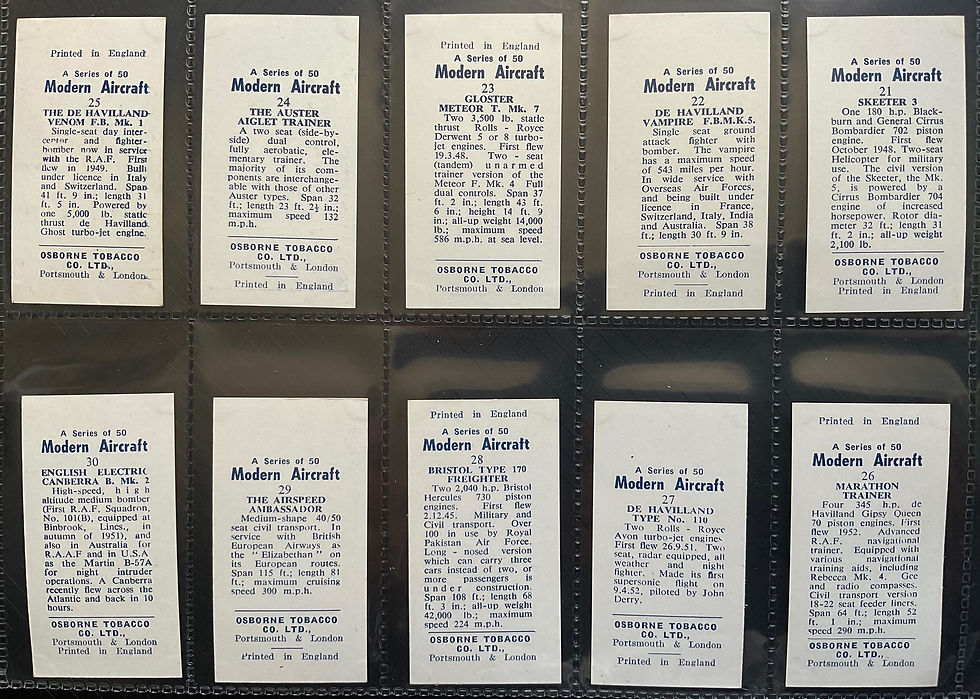 Printed in England
A Series of 50
Modern Aircraft
25
THE DE HAVILLAND
VENOM F.B. Mk. 1
Single-seat day inter-
ceptor and fighter-
bomber now in service
with the R.A.F. First
flew in 1949. Built
under licence in Italy
and Switzerland. Span
41 ft. 9 in.; length 31
ft. 5 in. Powered by
one 5,000 lb. static
thrust de Havilland
Ghost turbo-jet engine.
OSBORNE TOBACCO
CO. LTD.,
Portsmouth & London
A Series of 50
Modern Aircraft
24
THE AUSTER
AIGLET TRAINER
A two seat (side-by-
side) dual control,
fully aerobatic, ele-
mentary trainer. The
majority of its com-
ponents are interchange-
able with those of other
Auster types. Span 32
ft.; length 23 ft. 2½ in.;
maximum speed 132
m.p.h.
OSBORNE TOBACCO
CO. LTD.,
Portsmouth & London
Printed in England
Printed in England
A Series of 50
Modern Aircraft
23
GLOSTER
METEOR T. Mk. 7
Two 3,500 lb. static
thrust Rolls - Royce
Derwent 5 or 8 turbo-
jet engines. First flew
19.3.48. Two - seat
(tandem) unarmed
trainer version of the
Meteor F. Mk. 4 Full
dual controls. Span 37
ft. 2 in.; length 43 ft.
6 in.; height 14 ft. 9
in.; all-up weight 14,000
lb.; maximum speed
586 m.p.h. at sea level.
OSBORNE TOBACCO
CO. LTD.,
Portsmouth & London
A Series of 50
Modern Aircraft
22
DE HAVILLAND
VAMPIRE F.B.M.K.5.
Single seat ground
attack fighter with
bomber. The vampire
has a maximum speed
of 543 miles per hour.
In wide service with
Overseas Air Forces,
and being built under
licence in France,
Switzerland, Italy, India
and Australia. Span 38
ft.; length 30 ft. 9 in.
OSBORNE TOBACCO
CO. LTD.,
Portsmouth & London
Printed in England
A Series of 50
Modern Aircraft
21
SKEETER 3
One 180 h.p. Black-
burn and General Cirrus
Bombardier 702 piston
engine. First flew
October 1948. Two-seat
Helicopter for military
use. The civil version
of the Skeeter, the Mk.
5, is powered by a
Cirrus Bombardier 704
engine of increased
horsepower. Rotor dia-
meter 32 ft.; length 31
ft. 2 in.; all-up weight
2,100 lb.
OSBORNE TOBACCO
CO. LTD.,
Portsmouth & London
Printed in England
A Series of 50
Modern Aircraft
30
ENGLISH ELECTRIC
CANBERRA B. Mk. 2
High-speed, high
altitude medium bomber
(First R.A.F. Squadron,
No. 101(B), equipped at
Binbrook, Lincs., in
autumn of 1951), and
also in Australia for
R.A.A.F and in U.S.A
as the Martin B-57A
for night intruder
operations. A Canberra
recently flew across the
Atlantic and back in 10
hours.
OSBORNE TOBACCO
CO. LTD.,
Portsmouth & London
Printed in England
A Series of 50
Modern Aircraft
29
THE AIRSPEED
AMBASSADOR
Medium-shape 40/50
seat civil transport. In
service with British
European Airways as
the "Elizabethan" on
its European routes.
Span 115 ft; length 81
ft.; maximum cruising
speed 300 m.p.h.
OSBORNE TOBACCO
CO. LTD.,
Portsmouth & London
Printed in England
Printed in England
A Series of 50
Modern Aircraft
28
BRISTOL TYPE 170
FREIGHTER
Two 2,040 h.p. Bristol
Hercules 730 piston
engines. First flew
2.12.45. Military and
Civil transport. Over
100 in use by Royal
Pakistan Air Force.
Long - nosed version
which can carry three
cars instead of two, or
more passengers is
under construction
Span 108 ft; length 68
ft. 3 in.; all-up weight
42,000 lb., maximum
speed 224 m.p.h.
OSBORNE TOBACCO
CO. LTD.,
Portsmouth & London
A Series of 50
Modern Aircraft
27
DE HAVILLAND
TYPE No. 110
Two Rolls - Royce
Avon turbo-jet engines
First flew 26.9.51. Two
seat, radar equipped, all
weather and night
fighter. Made its first
supersonic flight on
9.4.52, piloted by John
Derry.
OSBORNE TOBACCO
CO. LTD.,
Portsmouth & London
Printed in England
Printed in England
A Series of 50
Modern Aircraft
26
MARATHON
TRAINER
Four 345 h.p. de
Havilland Gipsy Queen
70 piston engines. First
flew 1952. Advanced
R.A.F. navigational
trainer. Equipped with
various navigational
training aids, including
Rebecca Mk. 4. Gee
and radio compasses.
Civil transport version
18-22 seat feeder liners.
Span 64 ft.; length 52
ft. 1 in.; maximum
speed 290 m.p.h.
OSBORNE TOBACCO
CO. LTD.,
Portsmouth & London